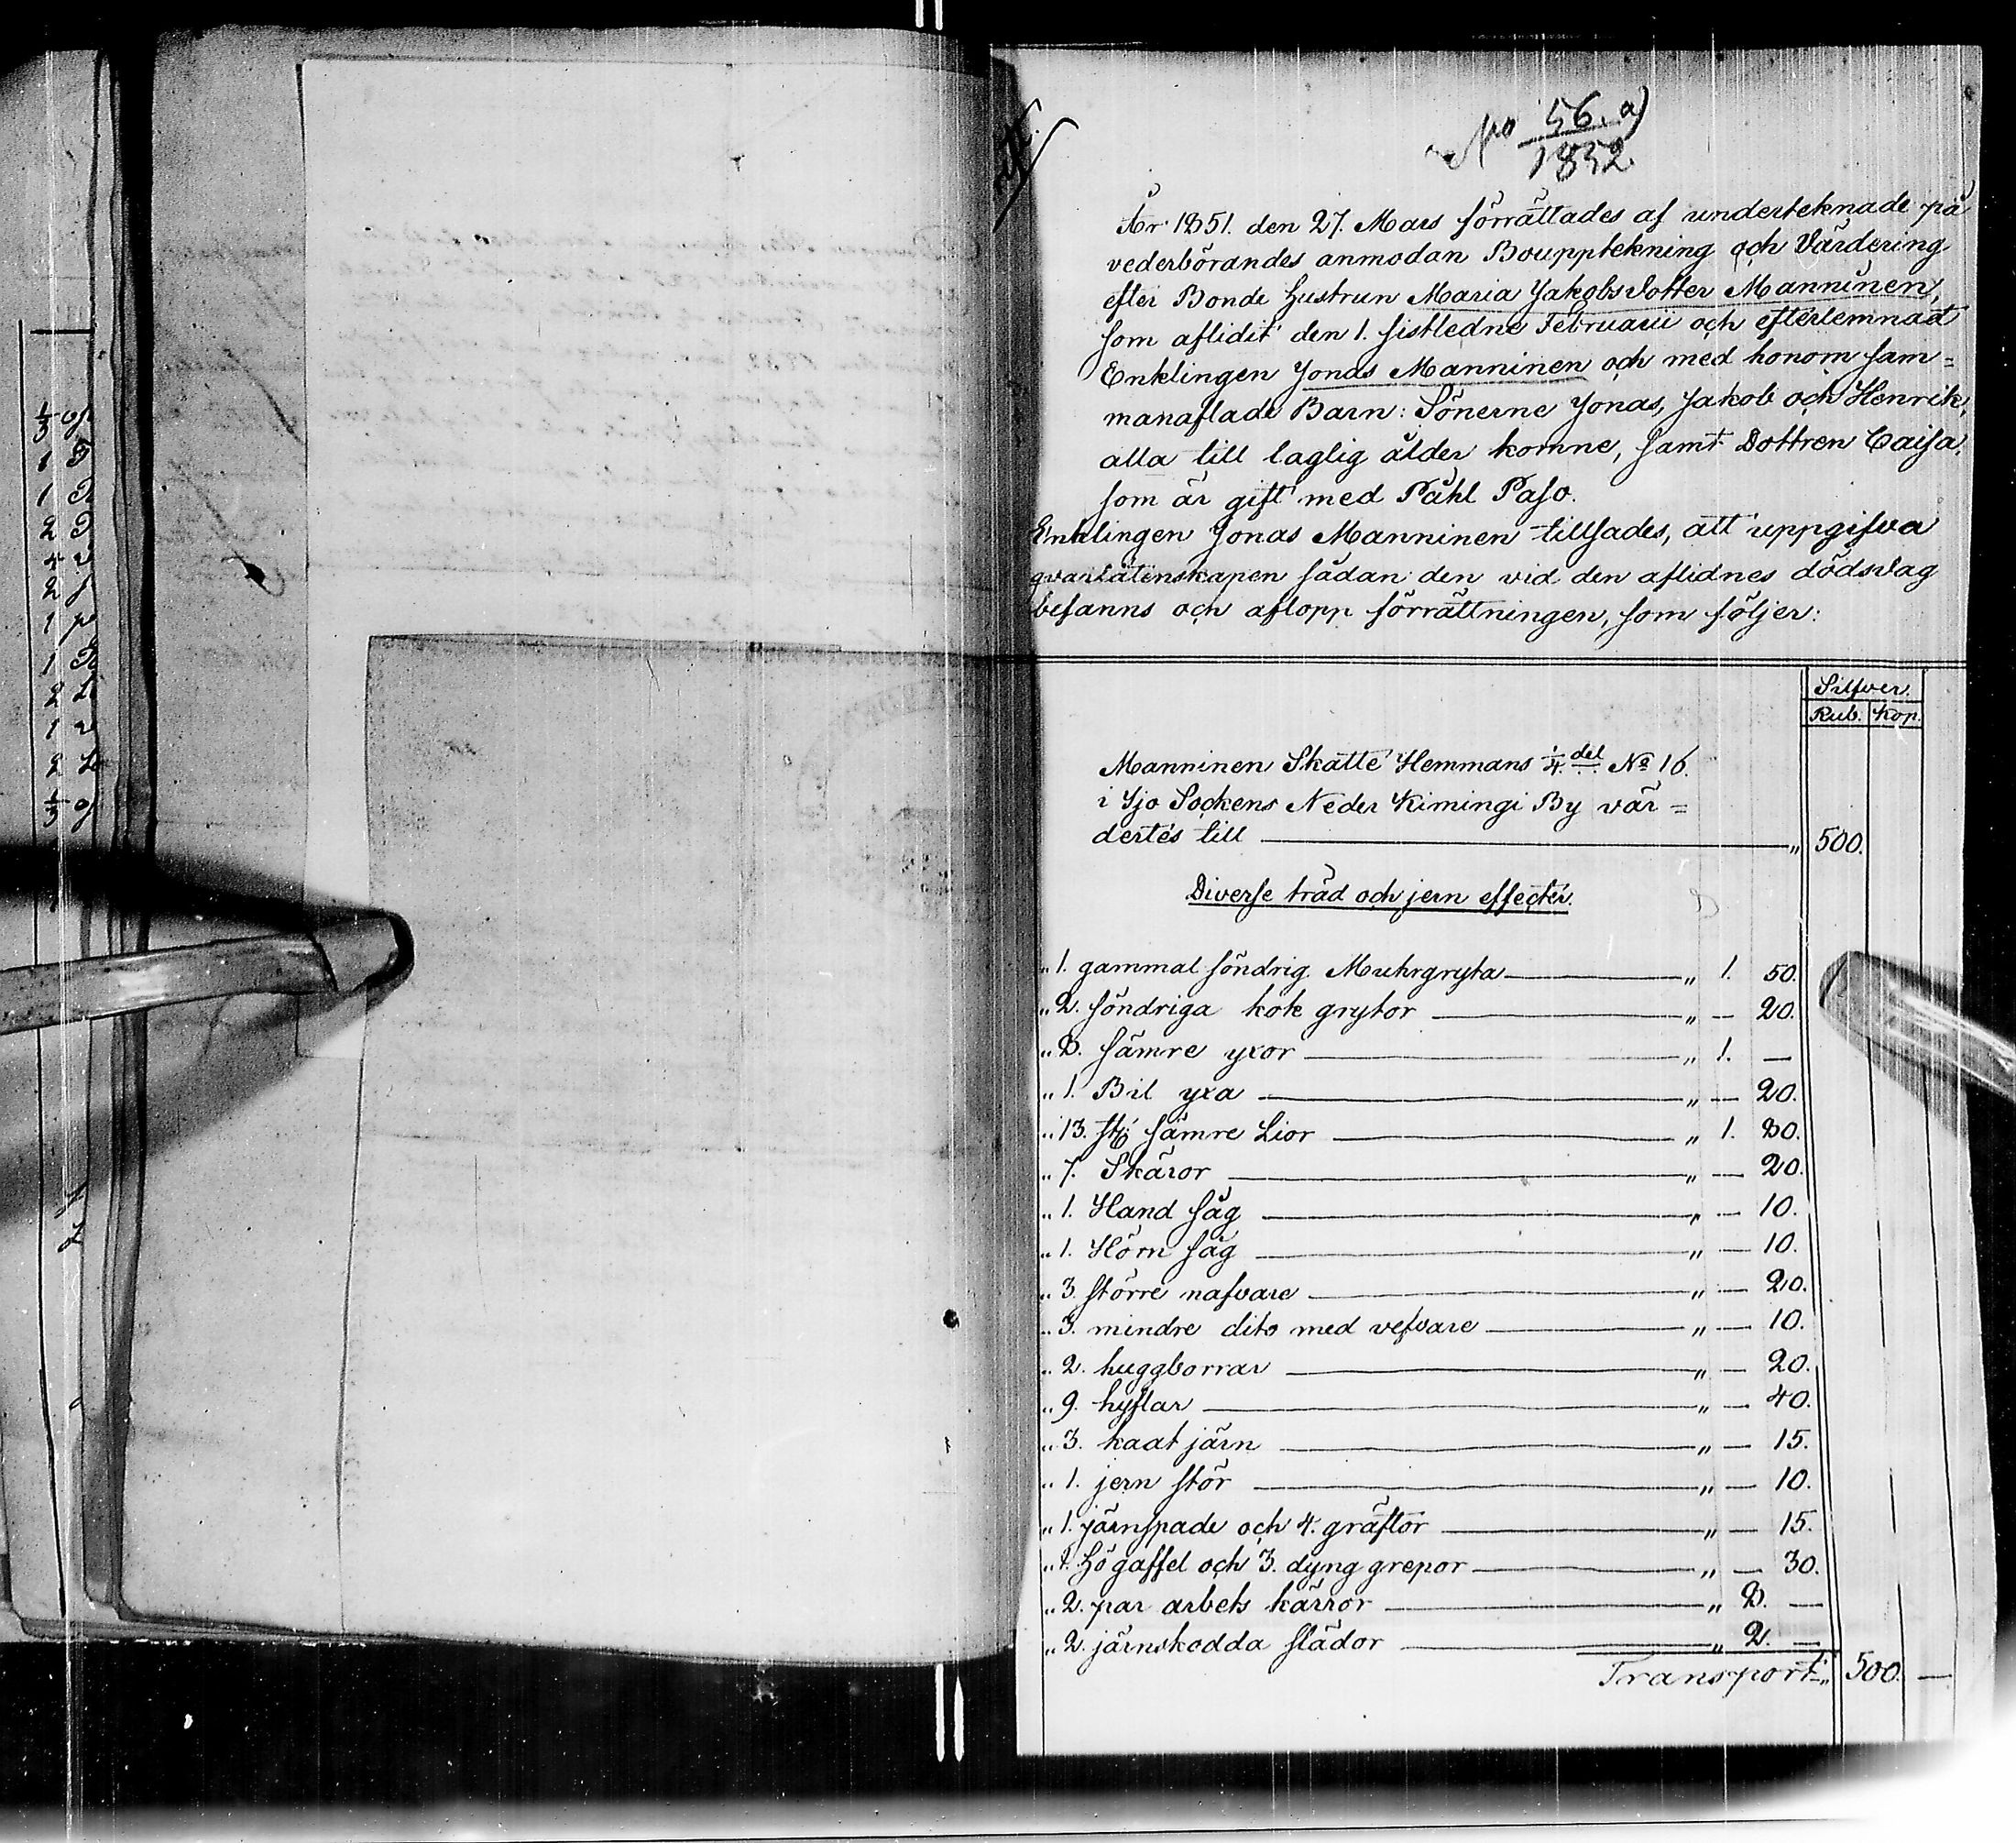 No 56. a)
1852
År 1851. den 27. Mars förrättades af underteknade på
vederbörandes anmodan Bouppteckning och Värdering
efter Bonde Hustrun Maria Jakobs dotter Manninen,
som aflidit den 1. sistledne Februarii och efterlemnat
Enklingen Jonas Manninen och med honom sam=
manaflade Barn: Sönerne Jonas, Jakob och Henrik,
alla till laglig ålder komne, samt Dottren Caisa,
som är gift med Påhl Paso.
Enklingen Jonas Manninen tillsades, att uppgifva
qvarlåtenskapen sådan den vid den aflidnes dödsdag
befanns och aflopp förrättningen, som följer:
Silfver.
Rub. Kop.
Manninen Skatte Hemmans 1/4 del No 16.
i Jjo Sockens Neder Kimingi By vär=
dertes till — " 500.
Diverse träd och jern effecter.
" 1. gammal söndrig Muhrgryta — " 1. 50.
" 2. söndriga kok grytor — " — 20.
" 8. sämre yxor — " 1. —
" 1. Bil yxa — " — 20.
" 13. st: sämre Lior — " 1. 80.
" 7. Skäror — " — 20.
" 1. Hand såg — " — 10.
" 1. Hörn såg — " — 10.
" 3. större nafvare — " — 20.
" 3. mindre dito med vefvare — " — 10.
" 2. huggborrar — " — 20.
" 9. hyflar — " — 40.
" 3. kaat järn — " — 15.
" 1. jern stör — " — 10.
" 1. järnspade och 4. gräftor — " — 15.
" 1. Högaffel och 3. dyng grepor — " — 30.
" 2. par arbets kärror — " 8. —
" 2. järnskodda slädor — " 2. —
Transport " 500. —